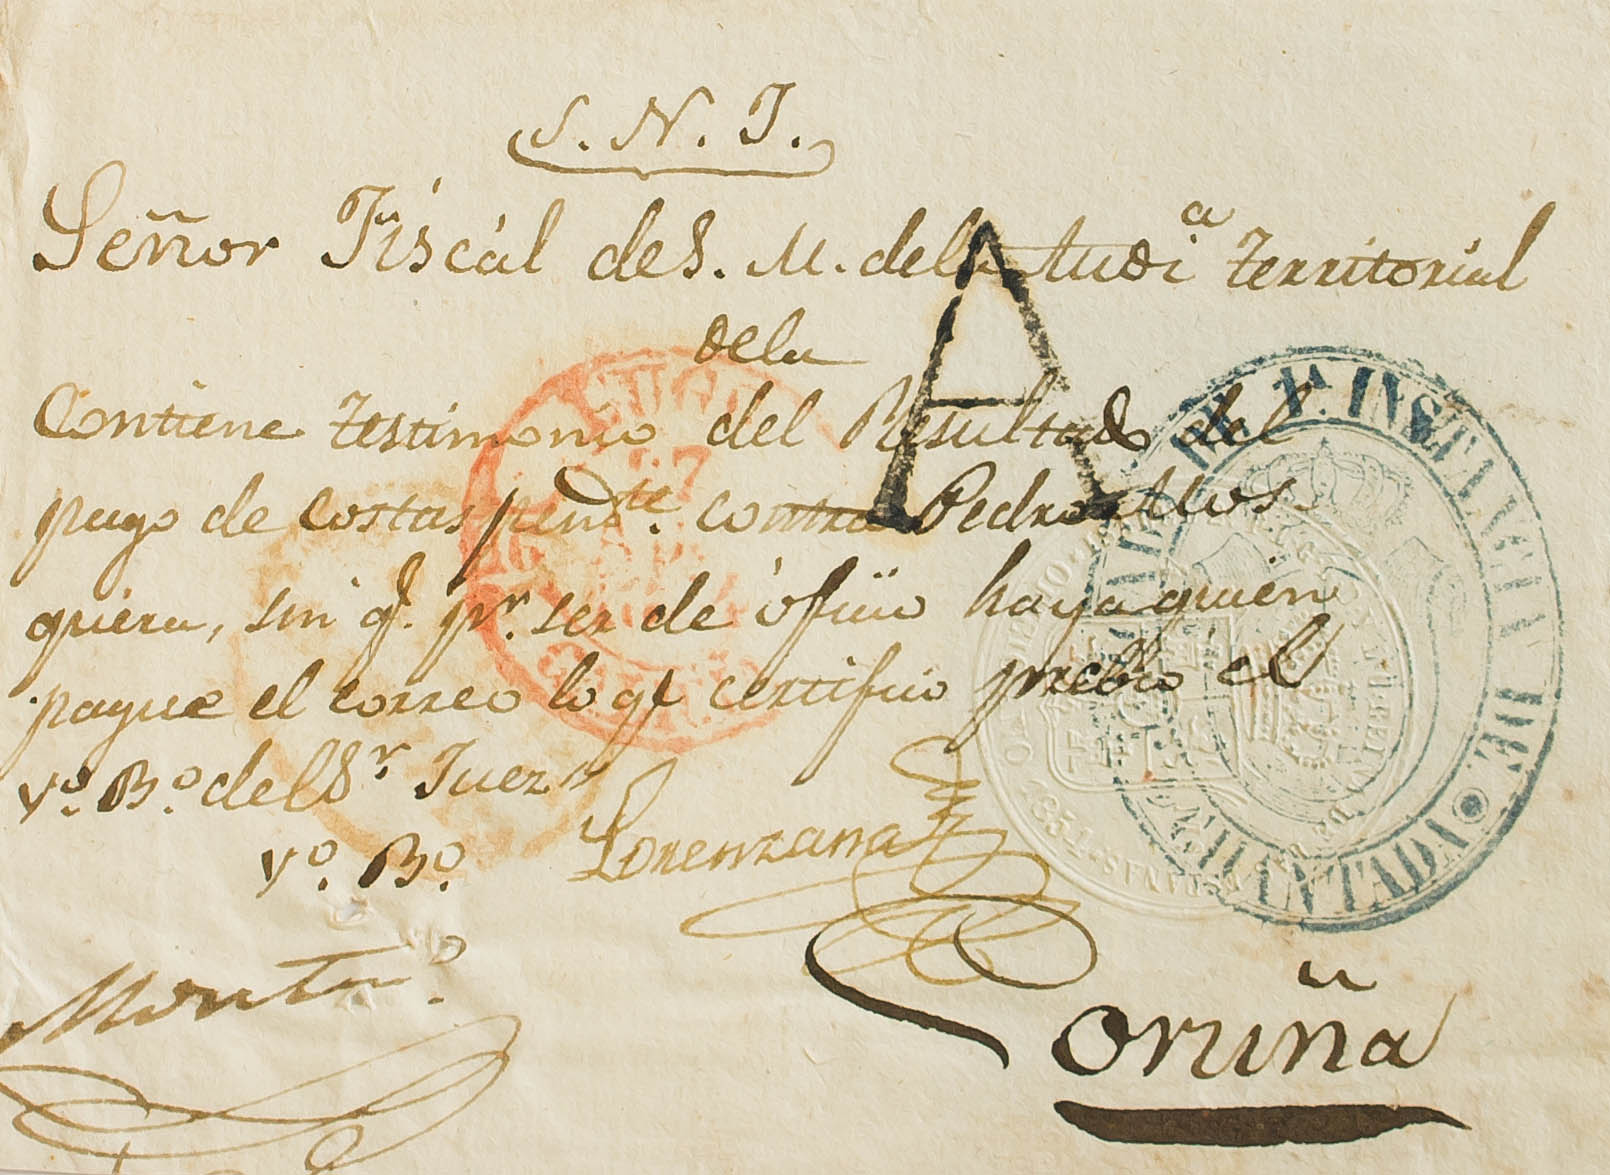 S. N. I.
Señor Fiscál de S. M. dela Audi.a Territorial
dela
Contiene Testimonio del Resultado del
pago de costas pend.te contra Pedro Mos
quiera, sin q.e p.r ser de óficio haya quien
pague el correo lo q.e certifico prebio el
V.o B.o del S.r Juez
V.o B.o
Lorenzana
Coruña
A
DE 1ª. INSTANCIA DE
CHANTADA
1851